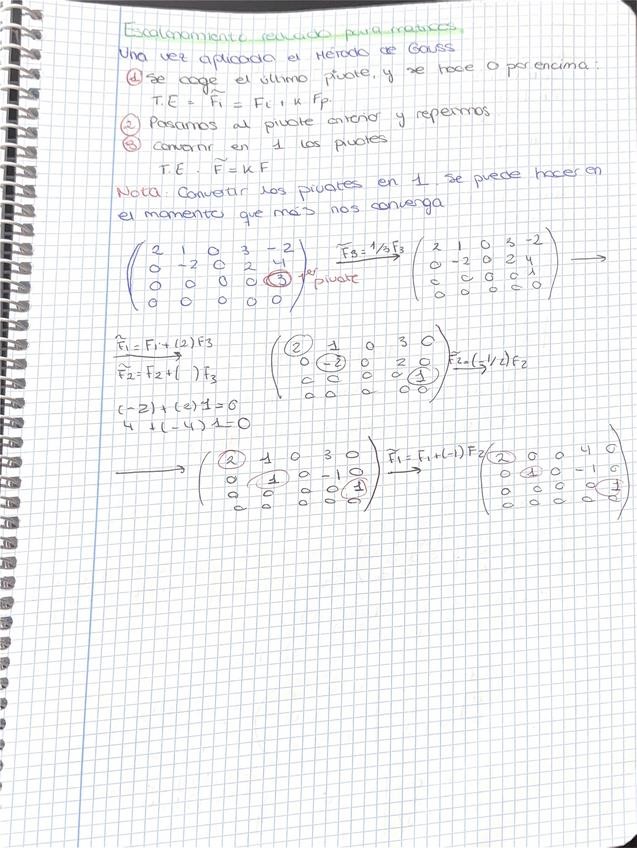 Escalonamiento reducido para matrices
Una vez aplicado el Método de Gauss
① Se coge el último pivote, y se hace 0 por encima:
T.E = F̃₁ = F₁ + k Fp.
② Pasamos al pivote anterior y repetimos
③ Convertir en 1 los pivotes
T.E. F̃ = k F
Nota: Convertir los pivotes en 1. Se puede hacer en
el momento que más nos converga
2 1 0 3 -2
0 -2 0 2 4
0 0 0 0 3 1er pivote
0 0 0 0 0
F̃3 = 1/3 F3
2 1 0 3 -2
0 -2 0 2 4
0 0 0 0 1
0 0 0 0 0
F̃1 = F1 + (2) F3
F̃2 = F2 + ( ) F3
(-2) + (2) 1 = 0
4 + (-4) 1 = 0
2 1 0 3 0
0 -2 0 2 0
0 0 0 0 1
0 0 0 0 0
F̃2 = (-1/2) F2
2 1 0 3 0
0 1 0 -1 0
0 0 0 0 1
0 0 0 0 0
F̃1 = F1 + (-1) F2
2 0 0 4 0
0 1 0 -1 0
0 0 0 0 1
0 0 0 0 0